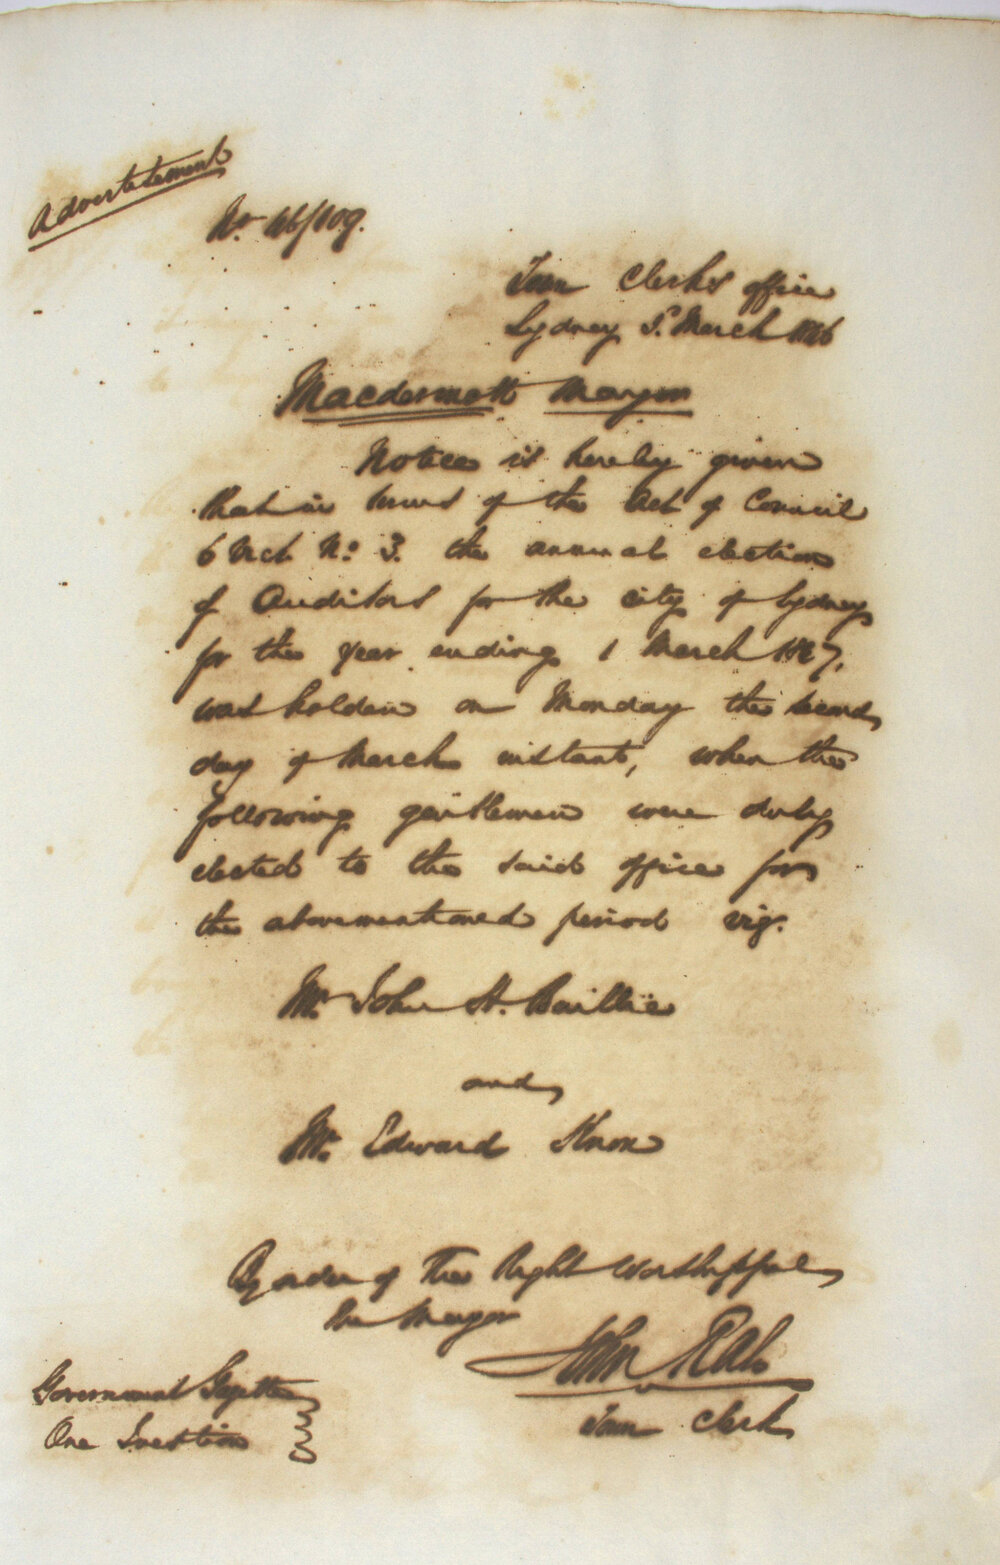 Advertisement
No. 46/109.
Town Clerk's office
Sydney 5. March 1846
Macdermott Mayor
Notice is hereby given
that in terms of the Act of Council
6 Vict No. 3. the annual election
of Auditors for the city of Sydney
for the year ending 1 March 1847,
was holden on Monday the second
day of March instant, when the
following gentlemen were duly
elected to the said office for
the abovementioned period viz.
Mr. John H. Baillie
and
Mr. Edward Knox
By order of The Right Worshipful
the Mayor
John Rae
Town Clerk
Government Gazette
One Insertion